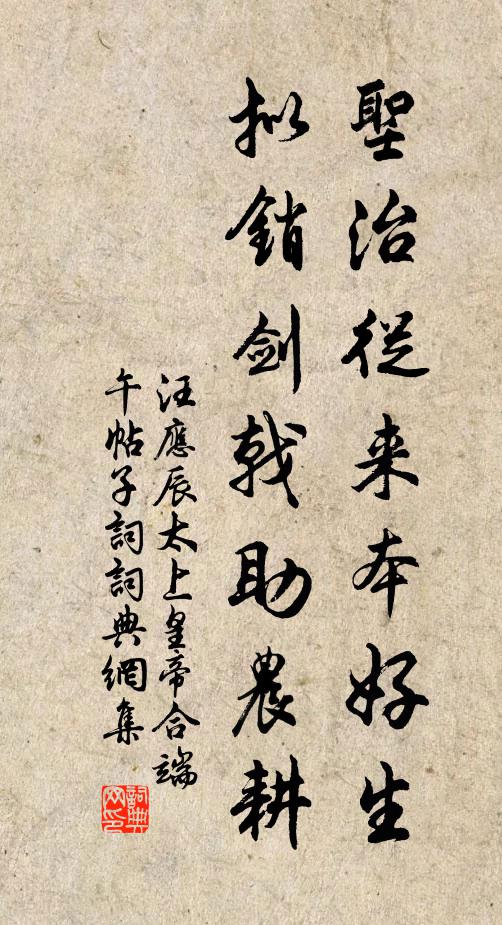 聖治從来本好生
拟銷劍戟助農耕
汪應辰太上皇帝合端
午帖子詞詞典網集
詞典网印